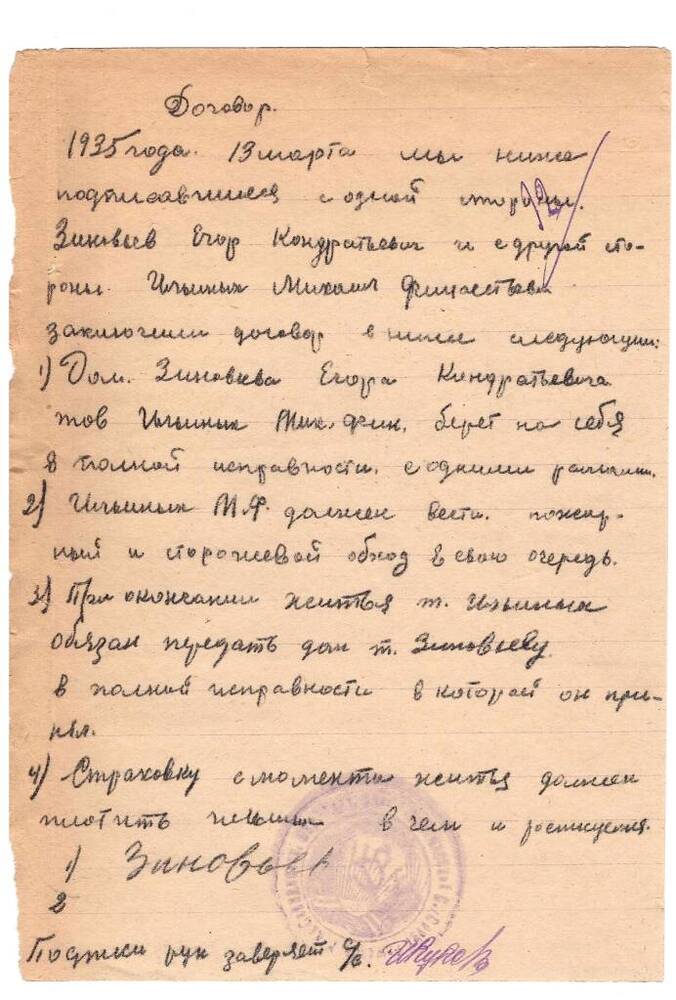 Договор.
1935 года. 13 марта мы ниже
подписавшиеся с одной стороны.
Зиновьев Егор Кондратьевич и с другой сто-
роны. Ильиных Михаил
заключили договор в ниже следующим:
1) Дом. Зиновьева Егора Кондратьевича
тов Ильиных Мих. Фин. берет на себя
в полной исправности. с одними
2) Ильиных М.Ф. должен вести. пожар-
ный и сторожевой обход в свою очередь.
3) При окончании житья т. Ильиных
обязан передать дом т. Зиновьеву.
в полной исправности в которой он при-
нял.
4) Страховку с момента житья должен
плотить Ильиных в чем и росписуемся.
1) Зиновьев
2
Подписи рук заверяет с/с.